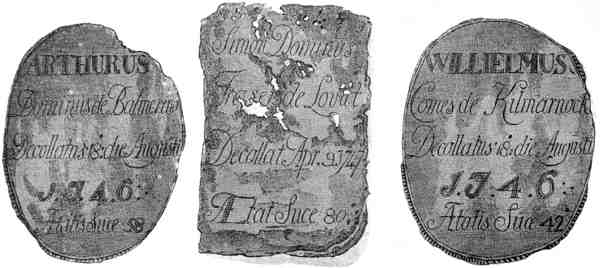 ARTHURUS
Dominus de Balmerino
Decollatus 18: die Augusti
1.7.4.6:
Ætatis Suæ 58
Simon Dominus
Fraser de Lovat
Decollat Apr. 9. 1747
Ætat Suæ 80:
WILLIELMUS
Comes de Kilmarnock
Decollatus 18: die Augusti
1.7.4.6:
Ætatis Suæ 42